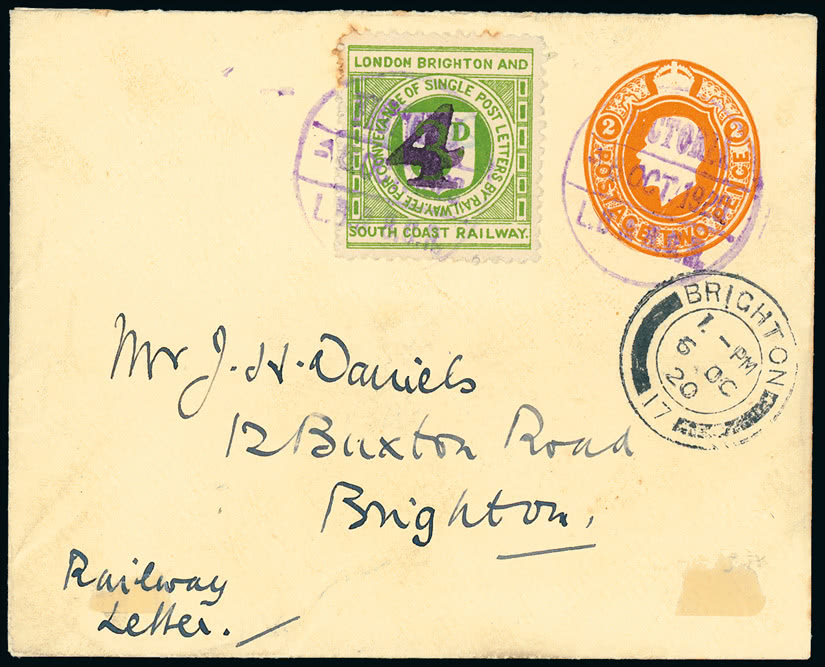 LONDON BRIGHTON AND
FEE FOR CONVEYANCE OF SINGLE POST LETTERS BY RAILWAY.
4
D
SOUTH COAST RAILWAY.
2 2
POSTAGE TWO PENCE
OCT 1920
BRIGHTON
1 - PM
6 OC
20
17
Mr J. H. Daniels
12 Buxton Road
Brighton.
Railway
Letter.